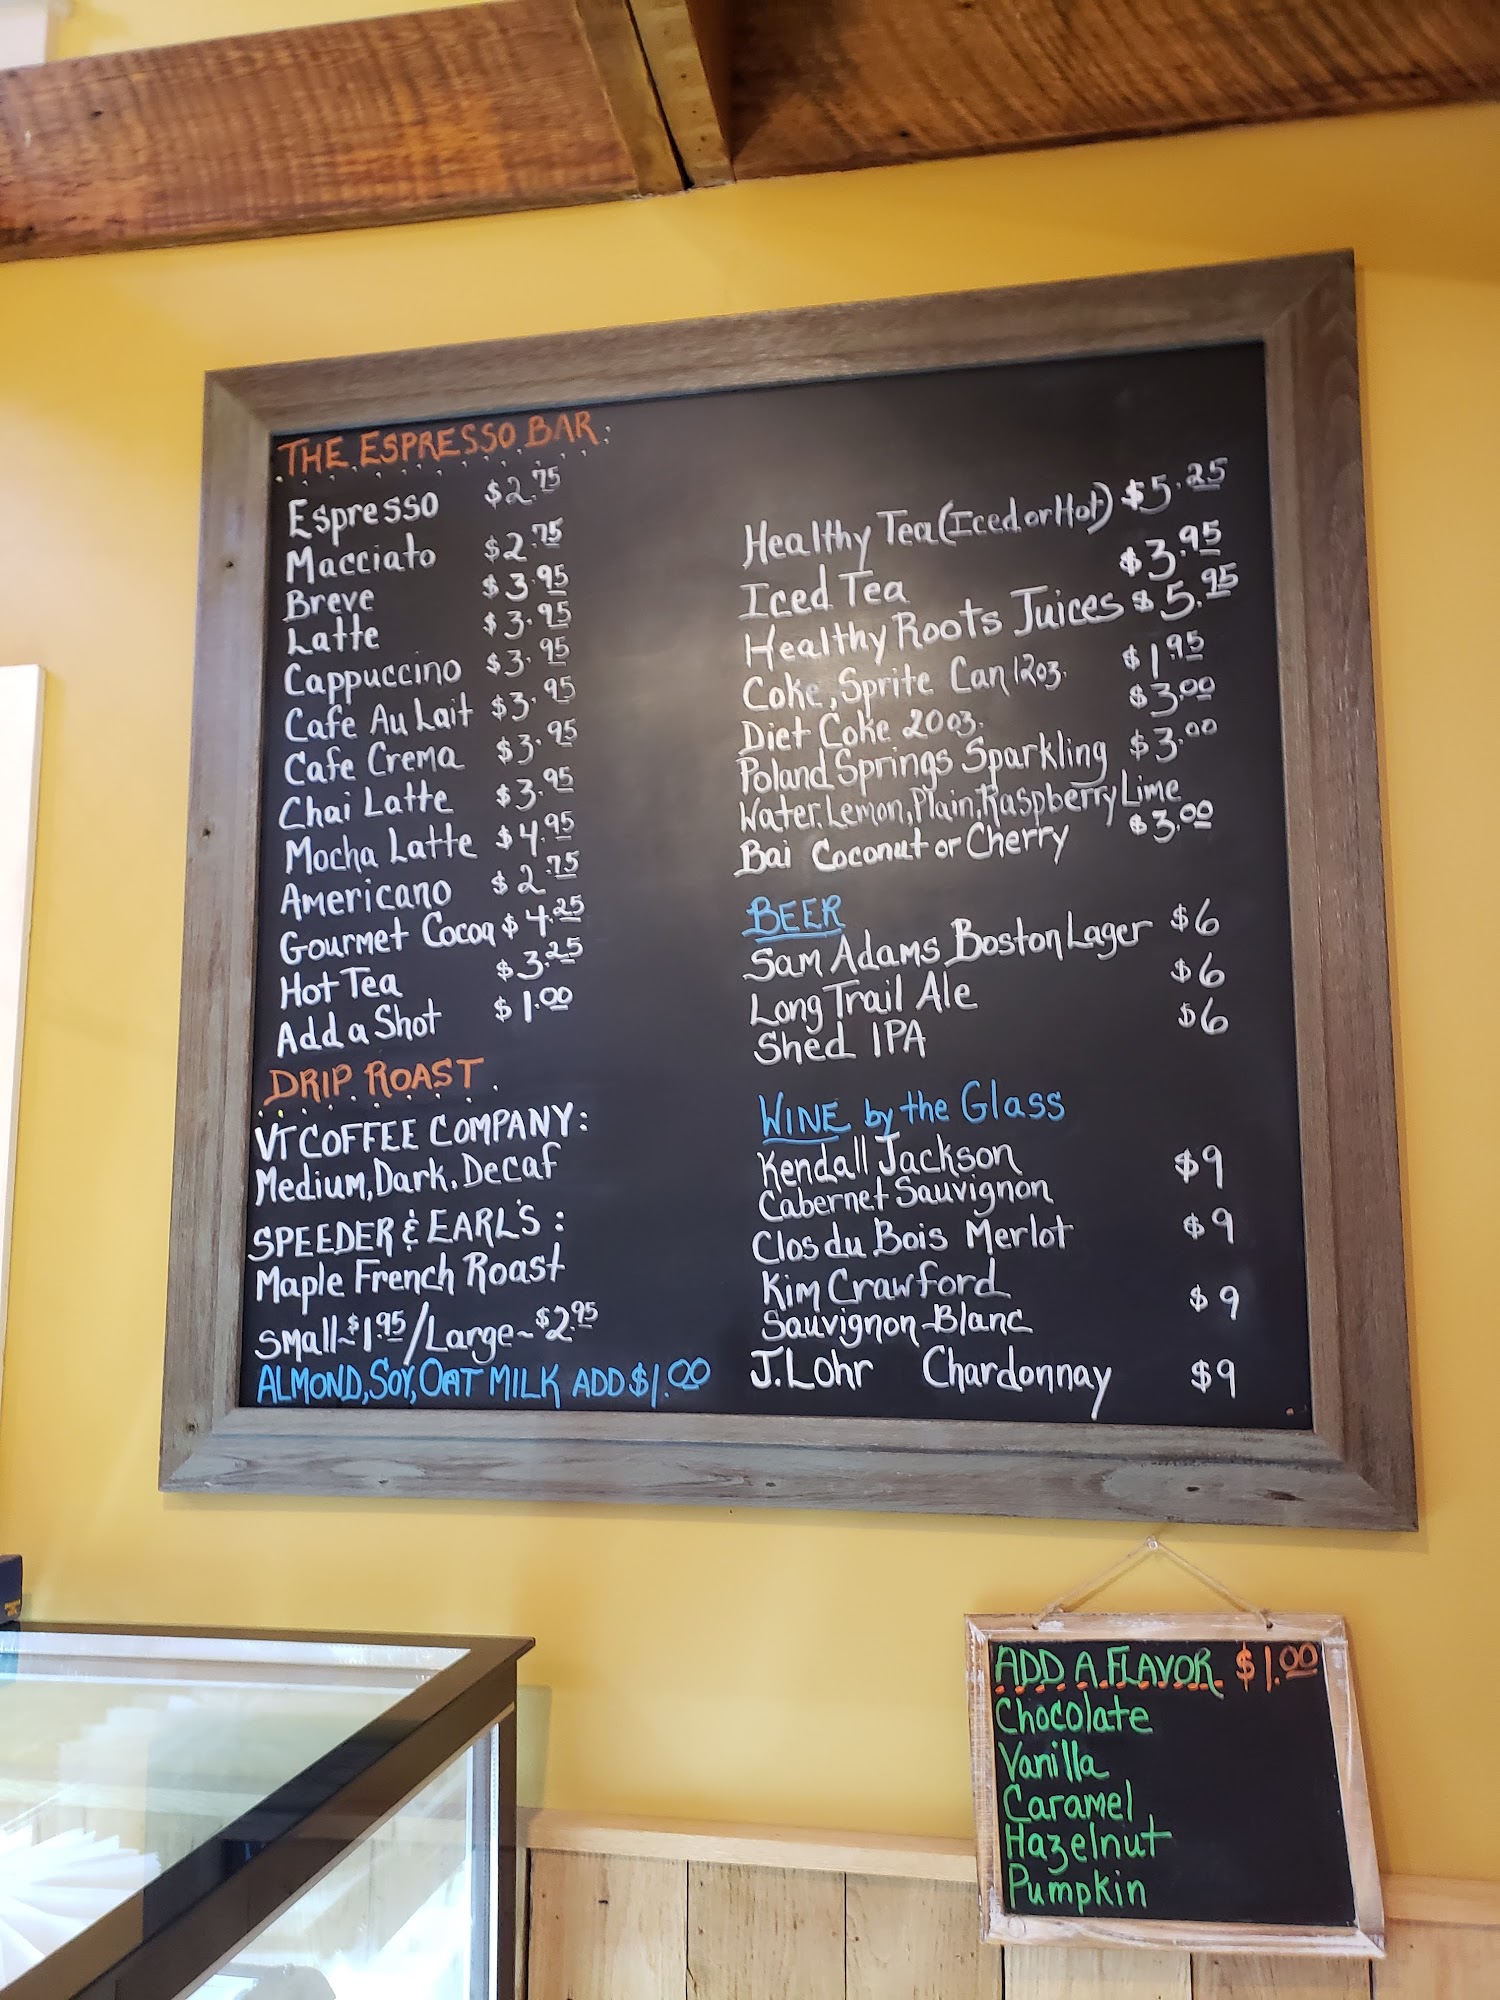 THE ESPRESSO BAR:
Espresso $2.75
Macciato $2.75
Breve $3.95
Latte $3.95
Cappuccino $3.95
Cafe Au Lait $3.95
Cafe Crema $3.95
Chai Latte $3.95
Mocha Latte $4.95
Americano $2.75
Gourmet Cocoa $4.25
Hot Tea $3.25
Add a Shot $1.00
DRIP ROAST
VT COFFEE COMPANY:
Medium, Dark, Decaf
SPEEDER & EARL'S:
Maple French Roast
Small~$1.95/Large~$2.95
ALMOND, SOY, OAT MILK ADD $1.00
Healthy Tea (Iced or Hot) $5.25
Iced Tea $3.95
Healthy Roots Juices $5.95
Coke, Sprite Can 12oz. $1.95
Diet Coke 20oz. $3.00
Poland Springs Sparkling $3.00
Water. Lemon, Plain, Raspberry Lime
Bai Coconut or Cherry $3.00
BEER
Sam Adams Boston Lager $6
Long Trail Ale $6
Shed IPA $6
WINE by the Glass
Kendall Jackson
Cabernet Sauvignon $9
Clos du Bois Merlot $9
Kim Crawford
Sauvignon-Blanc $9
J. Lohr Chardonnay $9
ADD A FLAVOR $1.00
Chocolate
Vanilla
Caramel
Hazelnut
Pumpkin